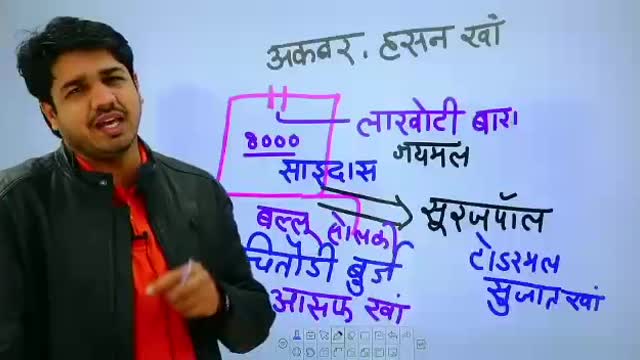 अकबर, हसन खां
8000
लाखोटी बारी
जयमल
साइदास
सूरजपॉल
बल्लू सोलंकी
टोडरमल
चितोडी बुर्ज
सुजात खां
आसफ खां